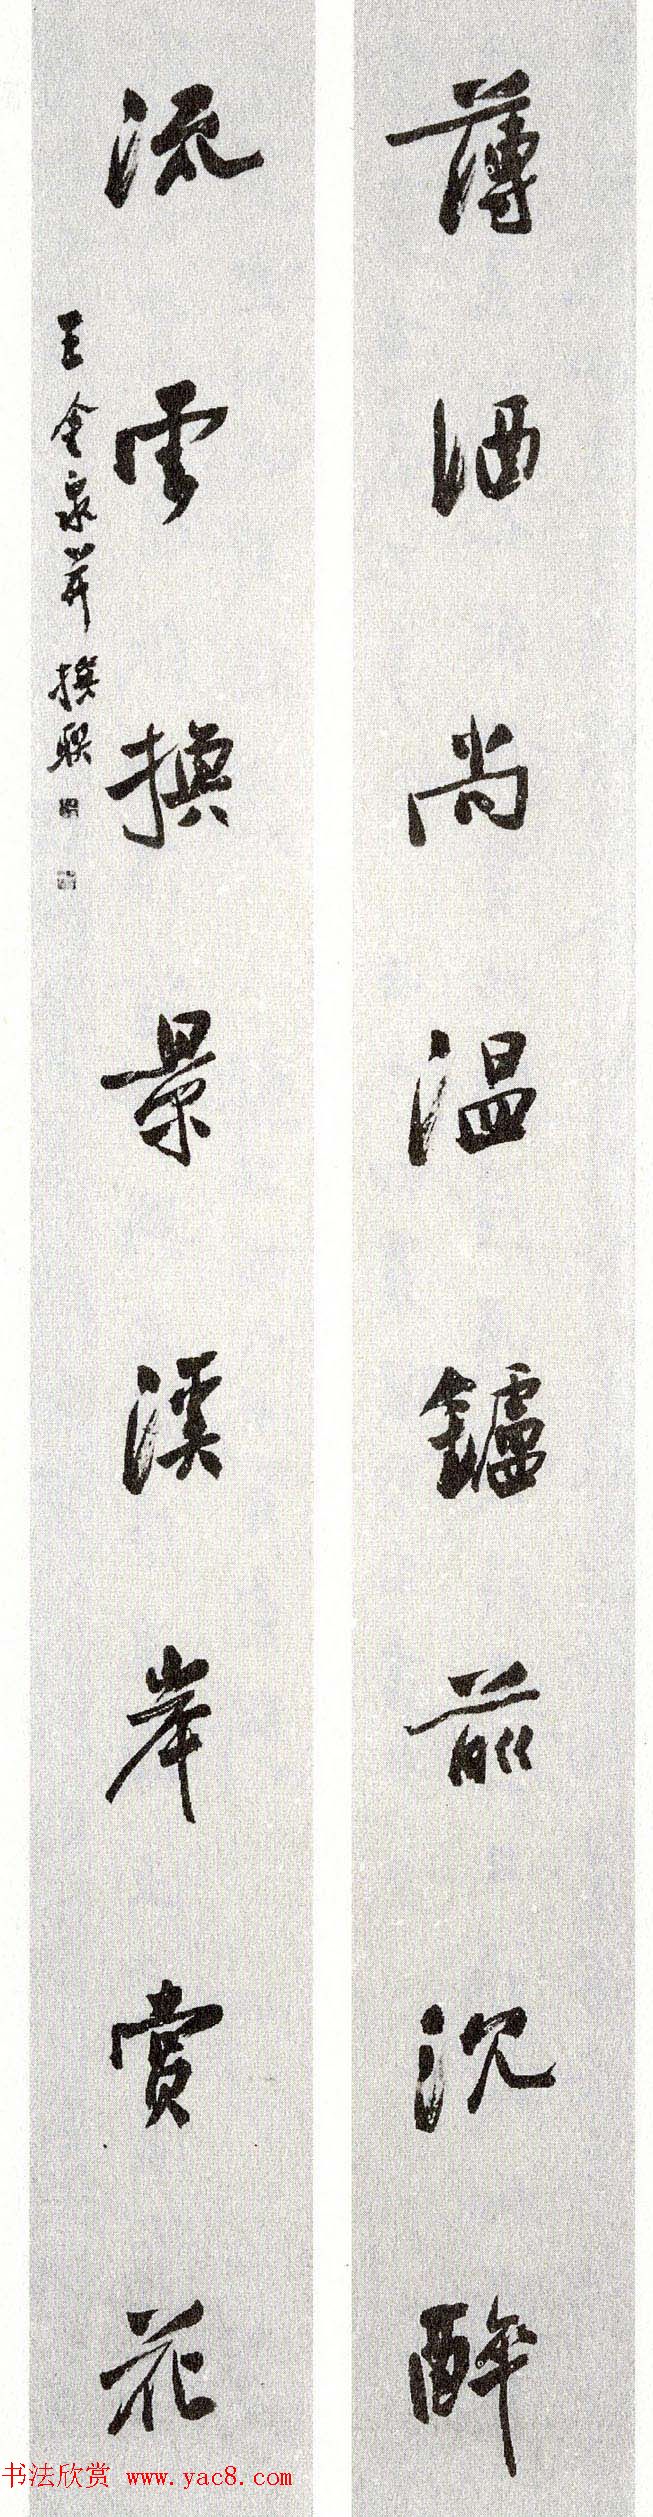 薄酒尚温鑪前沉醉
流雲撰景溪岸賞花
王金泉並撰聯
书法欣赏 www.yac8.com